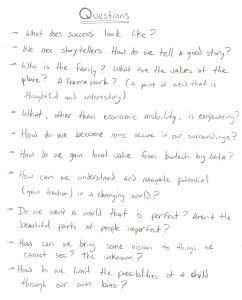 Questions
- What does success look like?
- We are storytellers. How do we tell a good story?
- Who is the family? What are the values of the
place? A framework? (A point of view that is
thoughtful and interesting)
- What, other than economic mobility, is empowering?
- How do we become more secure in our surroundings?
- How do we gain local value from biotech big data?
- How can we understand and navigate potential
(gain traction) in a changing world?
- Do we want a world that is perfect? Aren't the
beautiful parts of people imperfect?
- How can we bring some vision to things we
cannot see? The unknown?
- How do we limit the possibilities of a child
through our own bias?